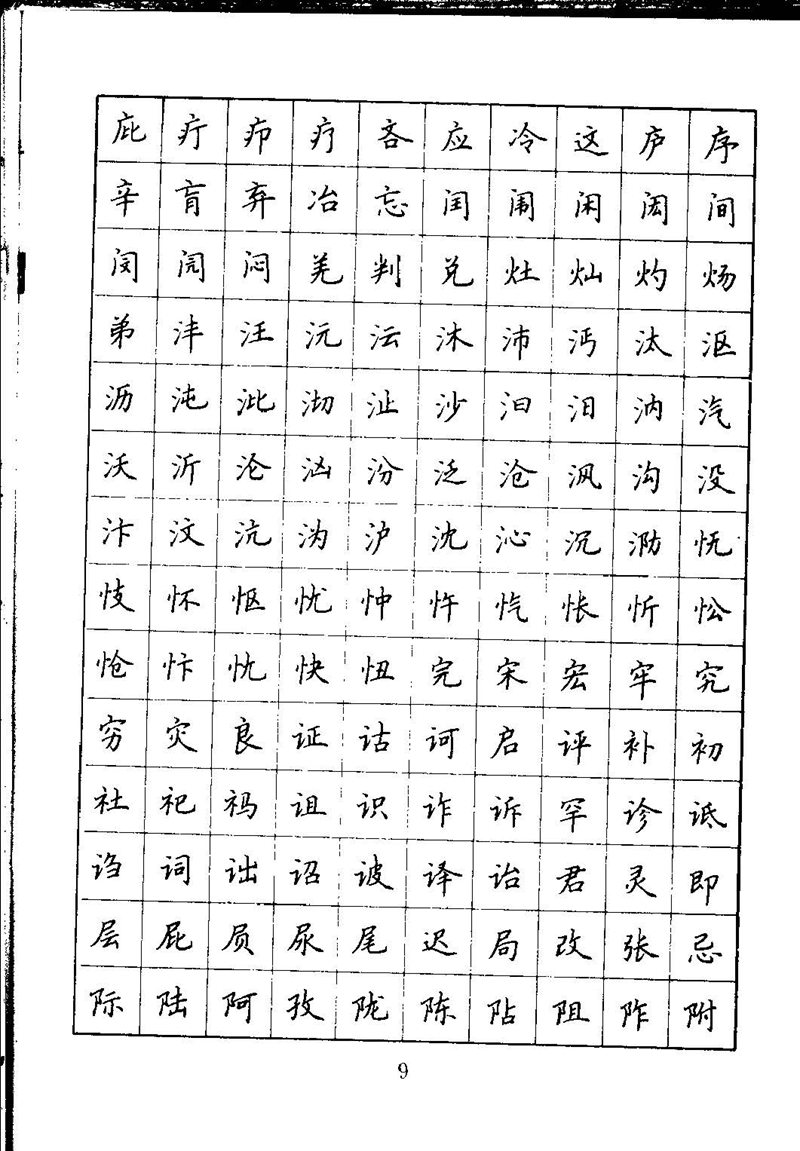 庇 疔 疖 疗 吝 应 冷 这 庐 序
辛 肓 弃 冶 忘 闰 闱 闲 闳 间
闵 闶 闷 羌 判 兑 灶 灿 灼 炀
弟 沣 汪 沅 沄 沐 沛 沔 汰 沤
沥 沌 沘 沏 沚 沙 汩 汨 汭 汽
沃 沂 沦 汹 汾 泛 沧 沨 沟 没
汴 汶 沆 沩 沪 沈 沁 沉 泐 怃
忮 怀 怄 忧 忡 忤 忾 怅 忻 忪
怆 忭 忱 快 忸 完 宋 宏 牢 究
穷 灾 良 证 诂 诃 启 评 补 初
社 祀 祃 诅 识 诈 诉 罕 诊 诋
诌 词 诎 诏 诐 译 诒 君 灵 即
层 屁 屃 尿 尾 迟 局 改 张 忌
际 陆 阿 孜 陇 陈 阽 阻 阼 附
9